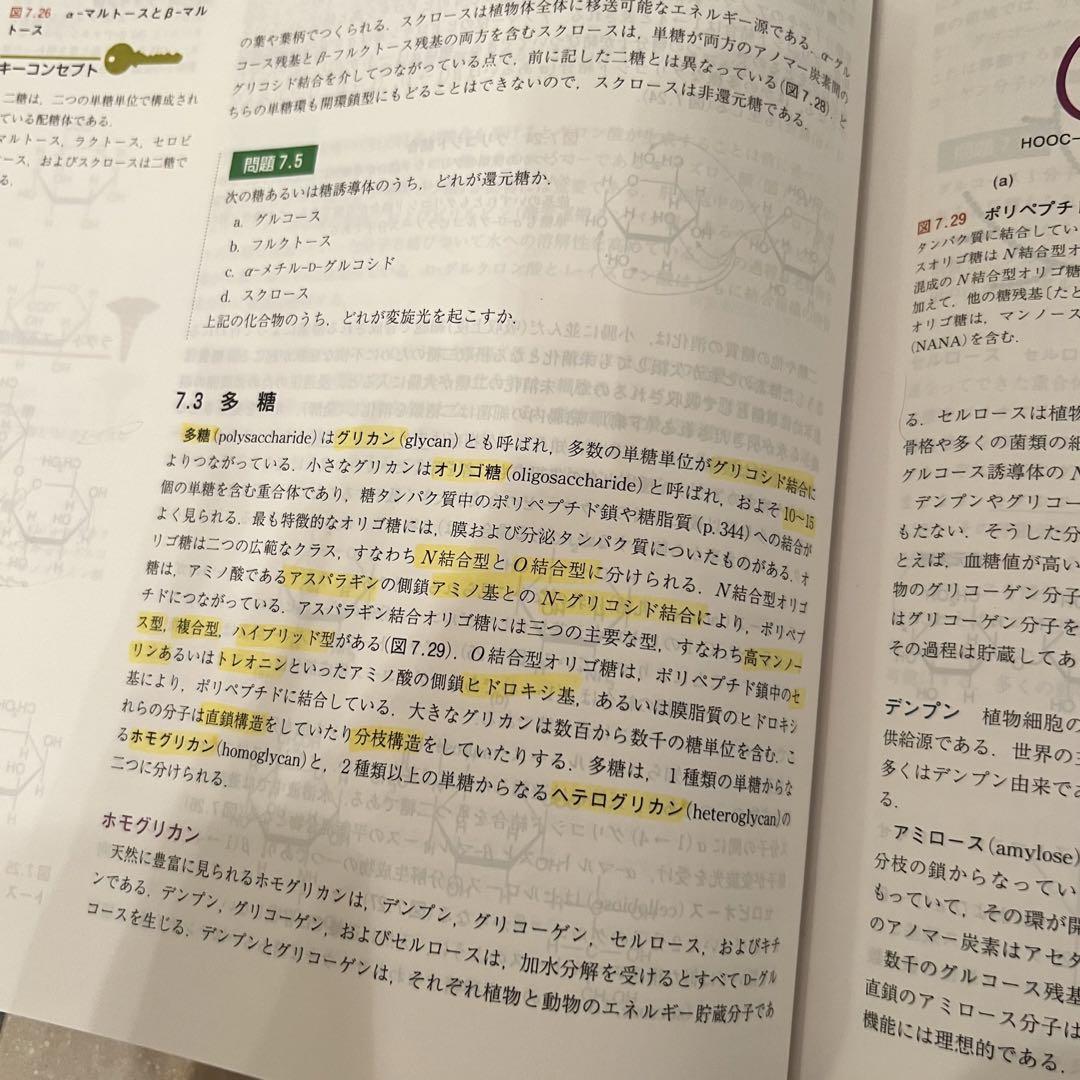 図7.26 α-マルトースとβ-マル
トース
キーコンセプト
二糖は，二つの単糖単位で構成され
ている配糖体である．
マルトース，ラクトース，セロビ
ース，およびスクロースは二糖で
る．
の葉や葉柄でつくられる．スクロースは植物体全体に移送可能なエネルギー源である．α-グル
コース残基とβ-フルクトース残基の両方を含むスクロースは，単糖が両方のアノマー炭素間の
グリコシド結合を介してつながっている点で，前に記した二糖とは異なっている(図7.28)．ど
ちらの単糖環も開環鎖型にもどることはできないので，スクロースは非還元糖である．
問題 7.5
次の糖あるいは糖誘導体のうち，どれが還元糖か．
a. グルコース
b. フルクトース
c. α-メチル-D-グルコシド
d. スクロース
上記の化合物のうち，どれが変旋光を起こすか．
7.3 多 糖
多糖(polysaccharide)はグリカン(glycan)とも呼ばれ，多数の単糖単位がグリコシド結合に
よりつながっている．小さなグリカンはオリゴ糖(oligosaccharide)と呼ばれ，およそ10〜15
個の単糖を含む重合体であり，糖タンパク質中のポリペプチド鎖や糖脂質(p.344)への結合が
よく見られる．最も特徴的なオリゴ糖には，膜および分泌タンパク質についたものがある．オ
リゴ糖は二つの広範なクラス，すなわちN結合型とO結合型に分けられる．N結合型オリゴ
糖は，アミノ酸であるアスパラギンの側鎖アミノ基とのN-グリコシド結合により，ポリペプ
チドにつながっている．アスパラギン結合オリゴ糖には三つの主要な型，すなわち高マンノー
ス型，複合型，ハイブリッド型がある(図7.29)．O結合型オリゴ糖は，ポリペプチド鎖中のセ
リンあるいはトレオニンといったアミノ酸の側鎖ヒドロキシ基，あるいは膜脂質のヒドロキシ
基により，ポリペプチドに結合している．大きなグリカンは数百から数千の糖単位を含む．こ
れらの分子は直鎖構造をしていたり分枝構造をしていたりする．多糖は，1種類の単糖からな
るホモグリカン(homoglycan)と，2種類以上の単糖からなるヘテログリカン(heteroglycan)の
二つに分けられる．
ホモグリカン
天然に豊富に見られるホモグリカンは，デンプン，グリコーゲン，セルロース，およびキチ
ンである．デンプン，グリコーゲン，およびセルロースは，加水分解を受けるとすべてD-グル
コースを生じる．デンプンとグリコーゲンは，それぞれ植物と動物のエネルギー貯蔵分子であ
HOOC-
(a)
図7.29 ポリペプチド
タンパク質に結合してい
スオリゴ糖はN結合型オ
混成のN結合型オリゴ糖
加えて，他の糖残基〔たと
オリゴ糖は，マンノース
(NANA)を含む．
る．セルロースは植物
骨格や多くの菌類の細
グルコース誘導体のN
デンプンやグリコー
もたない．そうした分
とえば，血糖値が高い
物のグリコーゲン分子
はグリコーゲン分子を
その過程は貯蔵してあ
デンプン 植物細胞の
供給源である．世界の主
多くはデンプン由来であ
る．
アミロース(amylose)
分枝の鎖からなってい
もっていて，その環が開
のアノマー炭素はアセタ
数千のグルコース残基
直鎖のアミロース分子は
機能には理想的である．